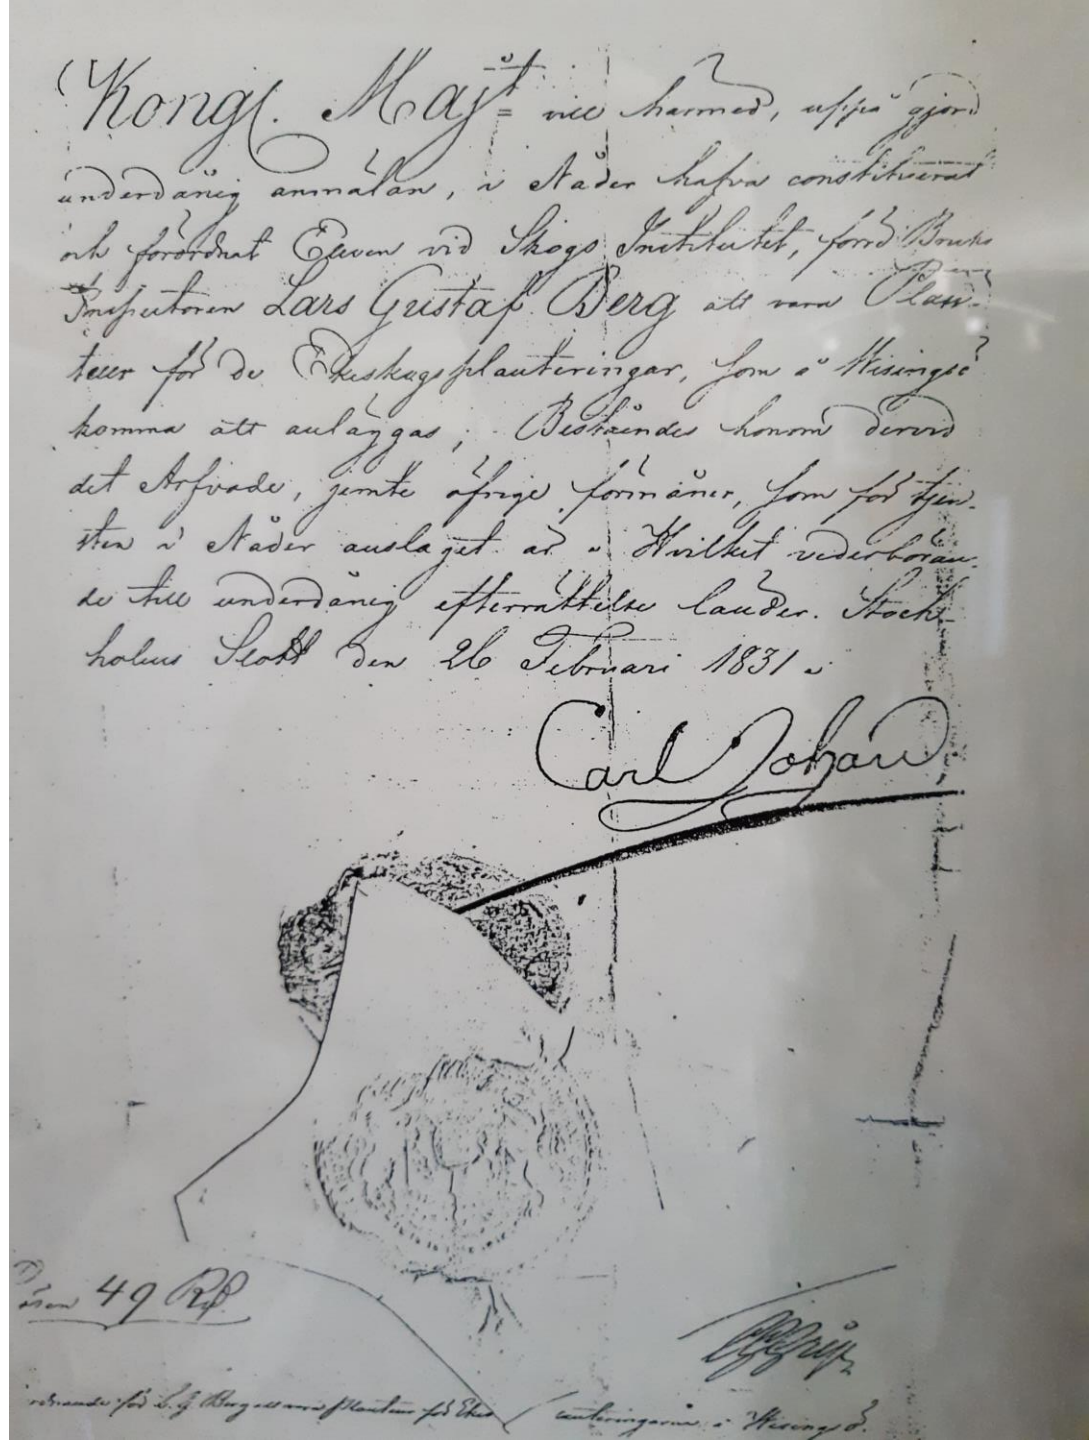 Kongl. Maj:t vill härmed, uppå gjord
underdånig anmälan, i Nåder hafva constituerat
och förordnat Eleven vid Skogs Institutet, förrd Bruks
Inspectoren Lars Gustaf Berg att vara Plan-
teur för de Ekeskogsplanteringar, som å Wisingsö
komma att anläggas; Beståendes honom dervid
det Arfvode, jemte öfrige förmåner, som för tjen-
sten i Nåder anslaget är. Hvilket vederböran-
de till underdånig efterrättelse länder. Stock-
holms Slott den 26 Februari 1831.
Carl Johan
49
för L. G. Berg att vara Planteur för Eke
anteringarne i Wisingsö.